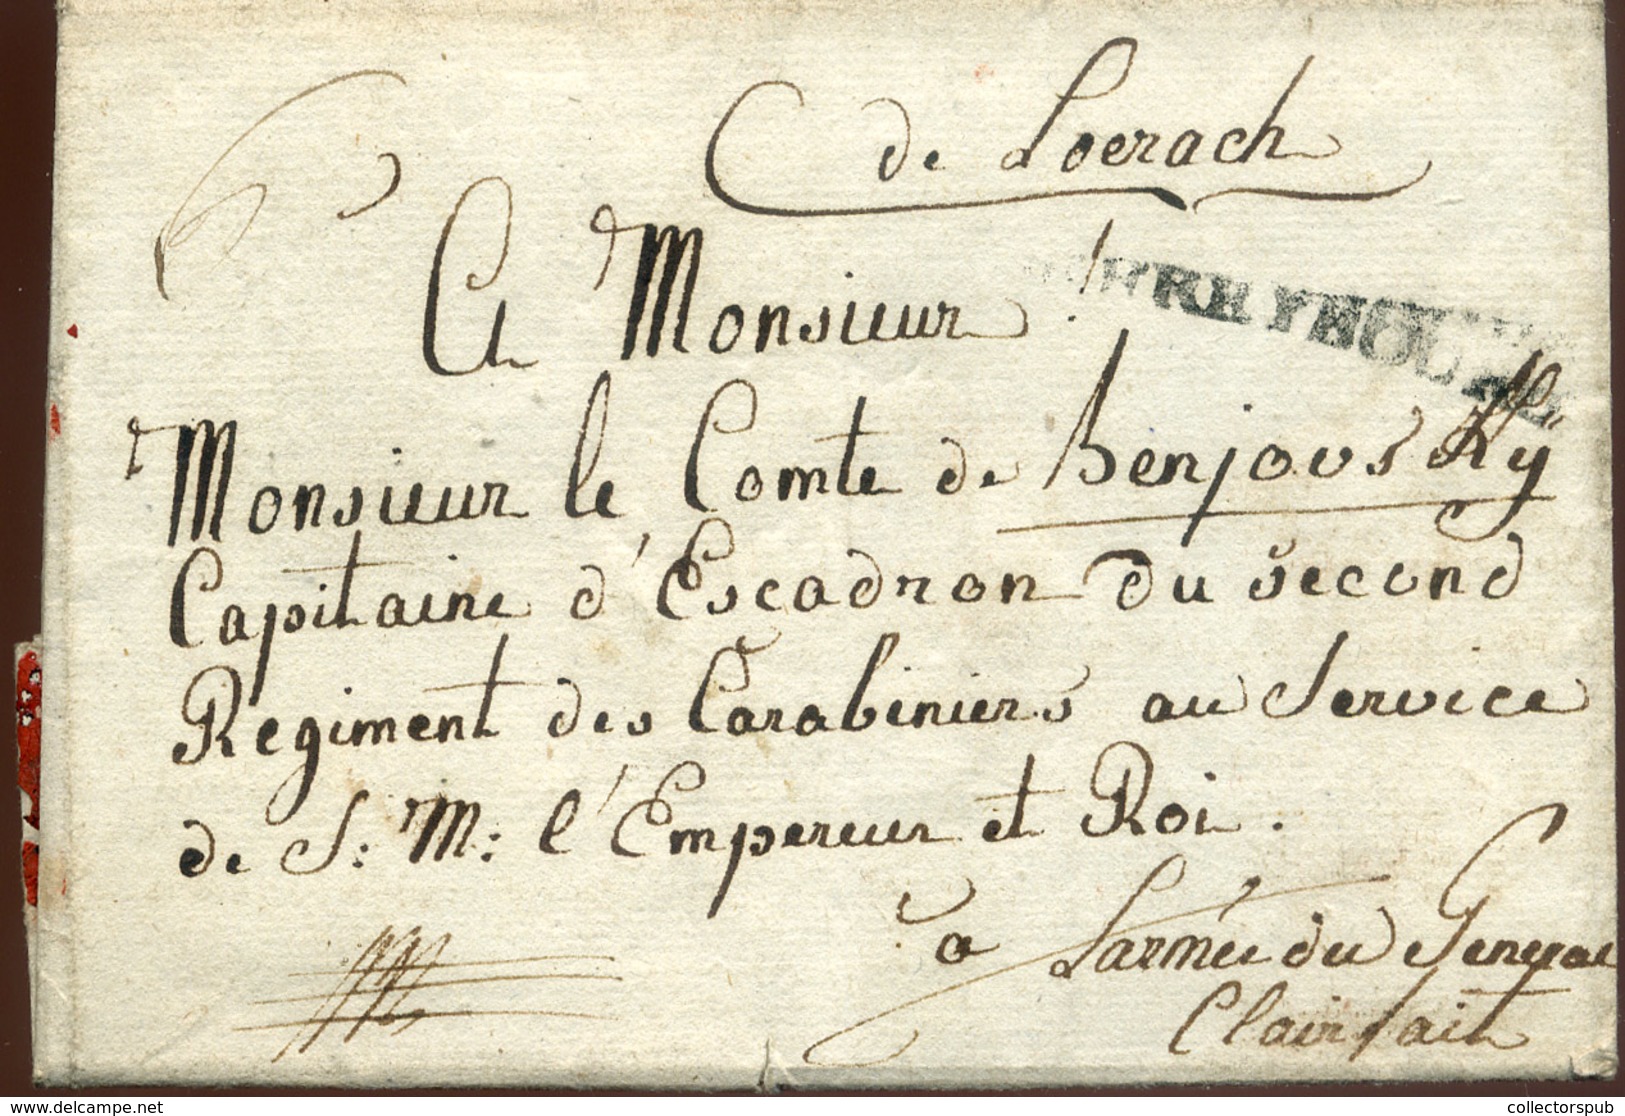 de Loerach
A Monsieur!
Monsieur le Comte de Benjovsky
Capitaine d'Escadron du second
Regiment des Carabiniers au Service
de S: M: l'Empereur et Roi.
a Larmée du General
Clairfait
collectorspub